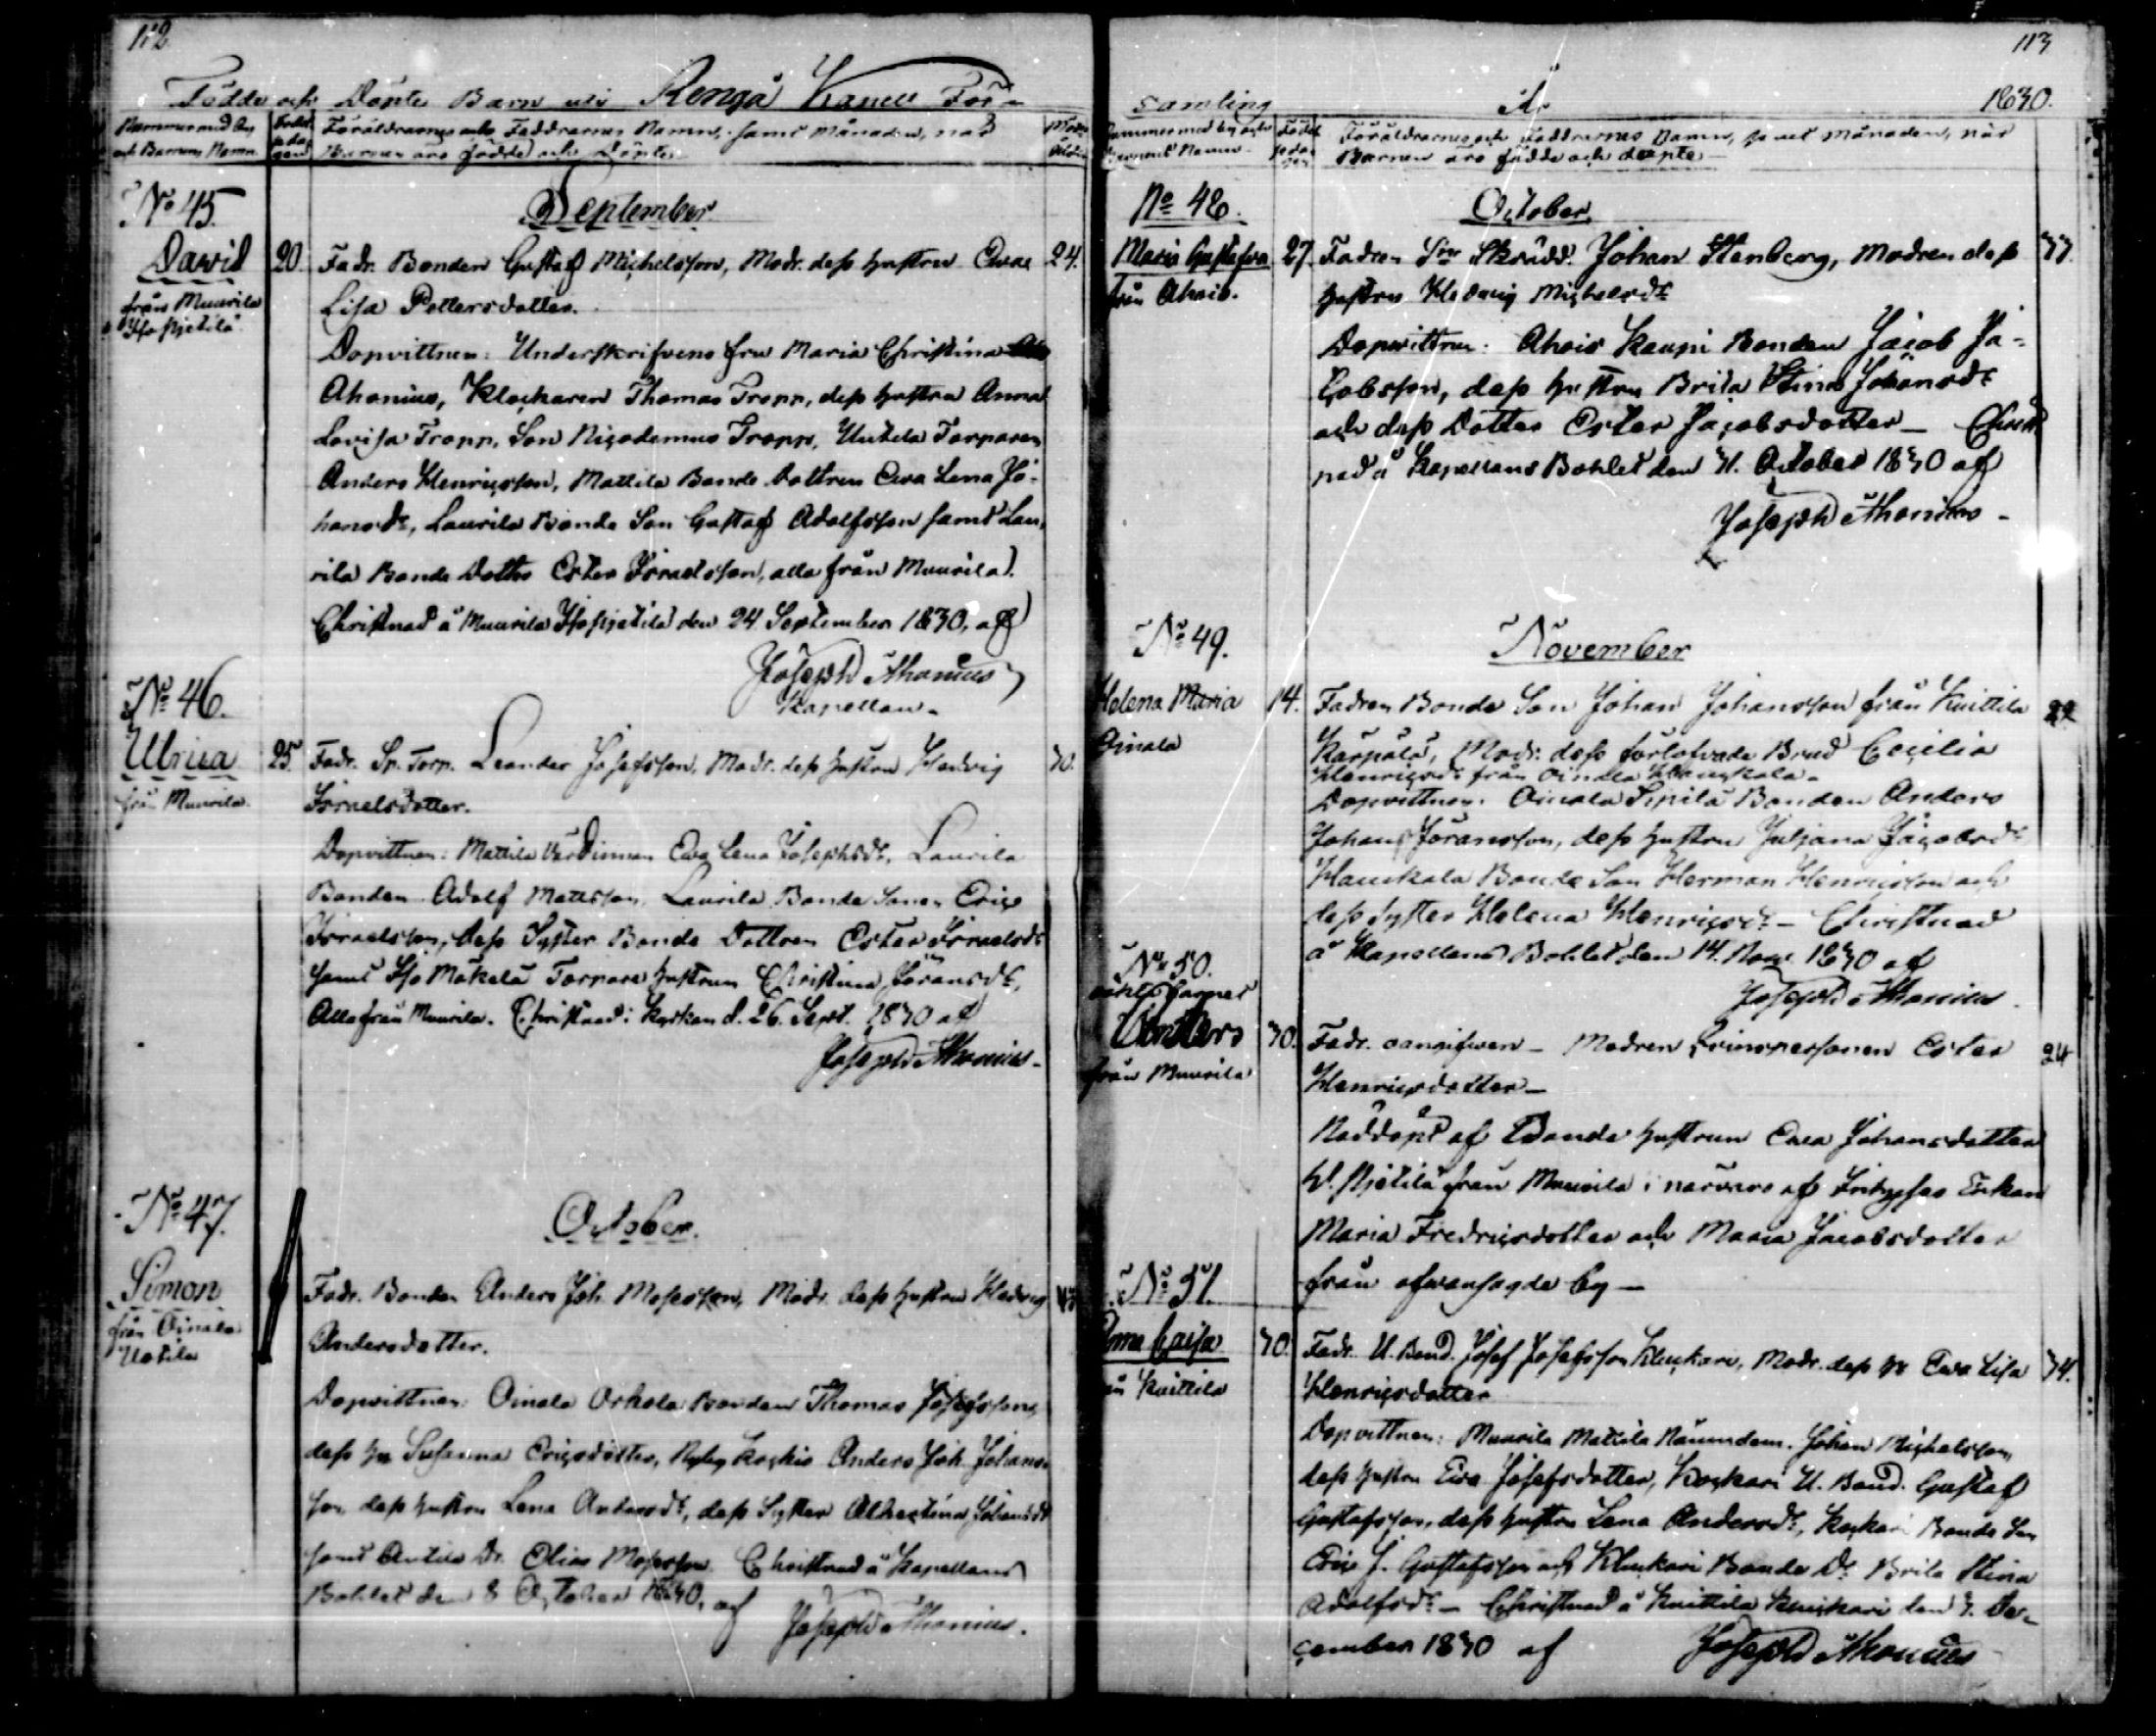 112
Födde och Döpte Barn uti Rengå Kapell För-
Nummer med By och Barnens Namn
Födelsedagen
Föräldrarnes och Faddrarnes Namn, samt månaden, när
Barnen äro födde och Döpte
Modr. ålder
No 45.
September
David
20.
Fadr. Bonden Gustaf Michelsson, Modr. dess hustru Ewa
24.
från Muurila
Lisa Pettersdotter.
Dopvittnen: Underskrifvens fru Maria Christina
Ahonius, Klockaren Thomas Tropp, dess hustru Anna
Lovisa Tropp, Son Nicodemus Tropp, Torparen
Anders Henricsson, Mattila Bonde dottren Ewa Lena Jo-
hansdr, Laurila Bonde Son Gustaf Adolfsson samt Lau-
rila Bonde Dotter Ester Israelsson, alla från Muurila.
Christnad å Muurila den 24 September 1830, af
Joseph Ahonius
Kapellan.
No 46.
Ulrica
25.
Fadr. Sp. Torp. Leander Josefsson, Modr. dess hustru Hedvig
30.
från Muurila.
Israelsdotter.
Dopvittnen: Mattila Värdinnan Ewa Lena Josephsdr, Laurila
Bonden Adolf Mattsson, Laurila Bonde Sonen Eric
Israelsson, dess Syster Bonde Dottren Ester Israelsdr
samt Iso Mäkelä Torpare hustrun Christina Göransdr,
Alla från Muurila. Christnad i Kyrkan d. 26. Sept. 1830 af
Joseph Ahonius.
No 47.
October.
Simon
Fadr. Bonden Anders Joh. Mosesson, Modr. dess hustru Hedvig
från Oinala
Uotila
Andersdotter.
Dopvittnen: Oinala Orhola Bonden Thomas Josefsson,
dess hu Susanna Ericsdotter, Koskis Anders Joh. Johans-
son dess hustru Lena Andersdr, dess Syster Albertina Johansdr
samt Antila Dr. Elias Mosesson. Christnad å Kapellans
Bohlet den 8 October 1830, af
Joseph Ahonius.
113
samling
År
1830.
Nummer med by och Barnens Namn
Födelsedagen
Föräldrarnes och Faddrarnes Namn, samt månaden, när
Barnen äro födde och döpte
No 48.
October
Maria Gustafva
27.
Fadren Skrädd. Johan Stenberg, Modren dess
33.
från Ahois.
hustru Hedvig Michelsdr
Dopvittnen: Ahois Kaupi Bonden Jacob Ja-
cobsson, dess hustru Brita Stina Johansdr
och dess Dotter Ester Jacobsdotter — Christ-
nad å Kapellans Bohlet den 31. October 1830 af
Joseph Ahonius
No 49.
November
Helena Maria
14.
Fadren Bonde Son Johan Johansson från Knittilä
22
Oinala
Kärpälä, Modr. dess förlofvade Brud Cecilia
Henricsdr från Oinala Hauskala.
Dopvittnen: Oinala Sipilä Bonden Anders
Johan Göransson, dess hustru Juljana Jacobsdr
Hauskala Bonde Son Herman Henricsson och
dess syster Helena Henricsdr — Christnad
å Kapellans Bohlet den 14. Nov. 1830 af
Joseph Ahonius.
No 50.
oäkta barnet
Anders
30.
Fadr. oangifwen — Modren qvinspersonen Ester
24
från Muurila
Henricsdotter —
Nöddöpt af Bonde hustrun Ewa Johansdotter
från Muurila i närvaro af Enkan
Maria Fredricsdotter och Maria Jacobsdotter
från ofvansagde by —
No 51.
Anna Caisa
30.
Fadr. U. Bond. Josef Josefsson Kleukari, Modr. dess hu Ewa Lisa
34.
från Knittilä
Henricsdotter
Dopvittnen: Muurila Mattila Nämndem. Johan Michelsson,
dess hustru Ewa Josefsdotter, Koskari U. Bond. Gustaf
Gustafsson, dess hustru Lena Andersdr, Koskari Bonde Son
Eric J. Gustafsson och Kleukari Bonde Dr Brita Stina
Adolfsdr — Christnad å Knittilä den 3. De-
cember 1830 af
Joseph Ahonius